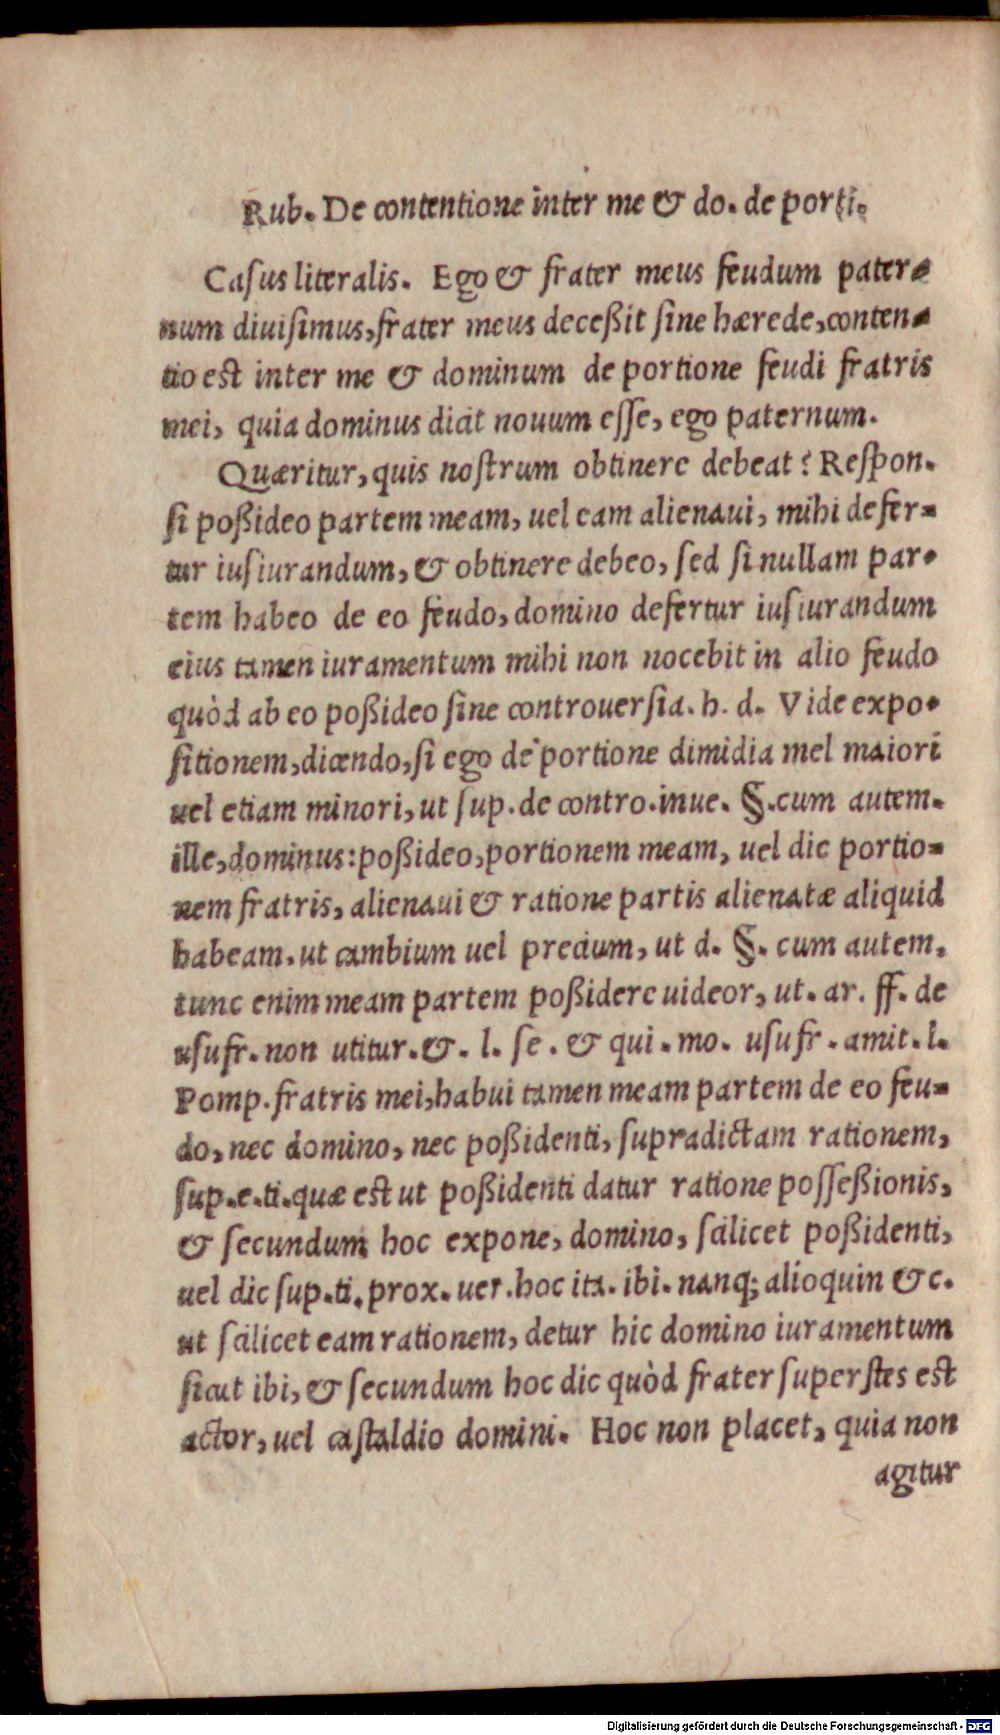 Rub. De contentione inter me & do. de porti.
Casus literalis. Ego & frater meus feudum pater-
num diuisimus, frater meus deceßit sine hærede, conten-
tio est inter me & dominum de portione feudi fratris
mei, quia dominus dicit nouum esse, ego paternum.
Quæritur, quis nostrum obtinere debeat? Respon.
si poßideo partem meam, uel eam alienaui, mihi defer-
tur iusiurandum, & obtinere debeo, sed si nullam par-
tem habeo de eo feudo, domino defertur iusiurandum
eius tamen iuramentum mihi non nocebit in alio feudo
quòd ab eo poßideo sine controuersia. h. d. Vide expo-
sitionem, dicendo, si ego de portione dimidia mel maiori
uel etiam minori, ut sup. de contro. inue. §. cum autem.
ille, dominus: poßideo, portionem meam, uel dic portio-
nem fratris, alienaui & ratione partis alienatæ aliquid
habeam. ut cambium uel precium, ut d. §. cum autem,
tunc enim meam partem poßidere uideor, ut. ar. ff. de
usufr. non utitur. &. l. se. & qui. mo. usufr. amit. l.
Pomp. fratris mei, habui tamen meam partem de eo feu-
do, nec domino, nec poßidenti, supradictam rationem,
sup. e. ti. quæ est ut poßidenti datur ratione posseßionis,
& secundum hoc expone, domino, scilicet poßidenti,
uel dic sup. ti. prox. uer. hoc ita. ibi. nanq; alioquin &c.
ut scilicet eam rationem, detur hic domino iuramentum
sicut ibi, & secundum hoc dic quòd frater superstes est
actor, uel castaldio domini. Hoc non placet, quia non
agitur
Digitalisierung gefördert durch die Deutsche Forschungsgemeinschaft - DFG